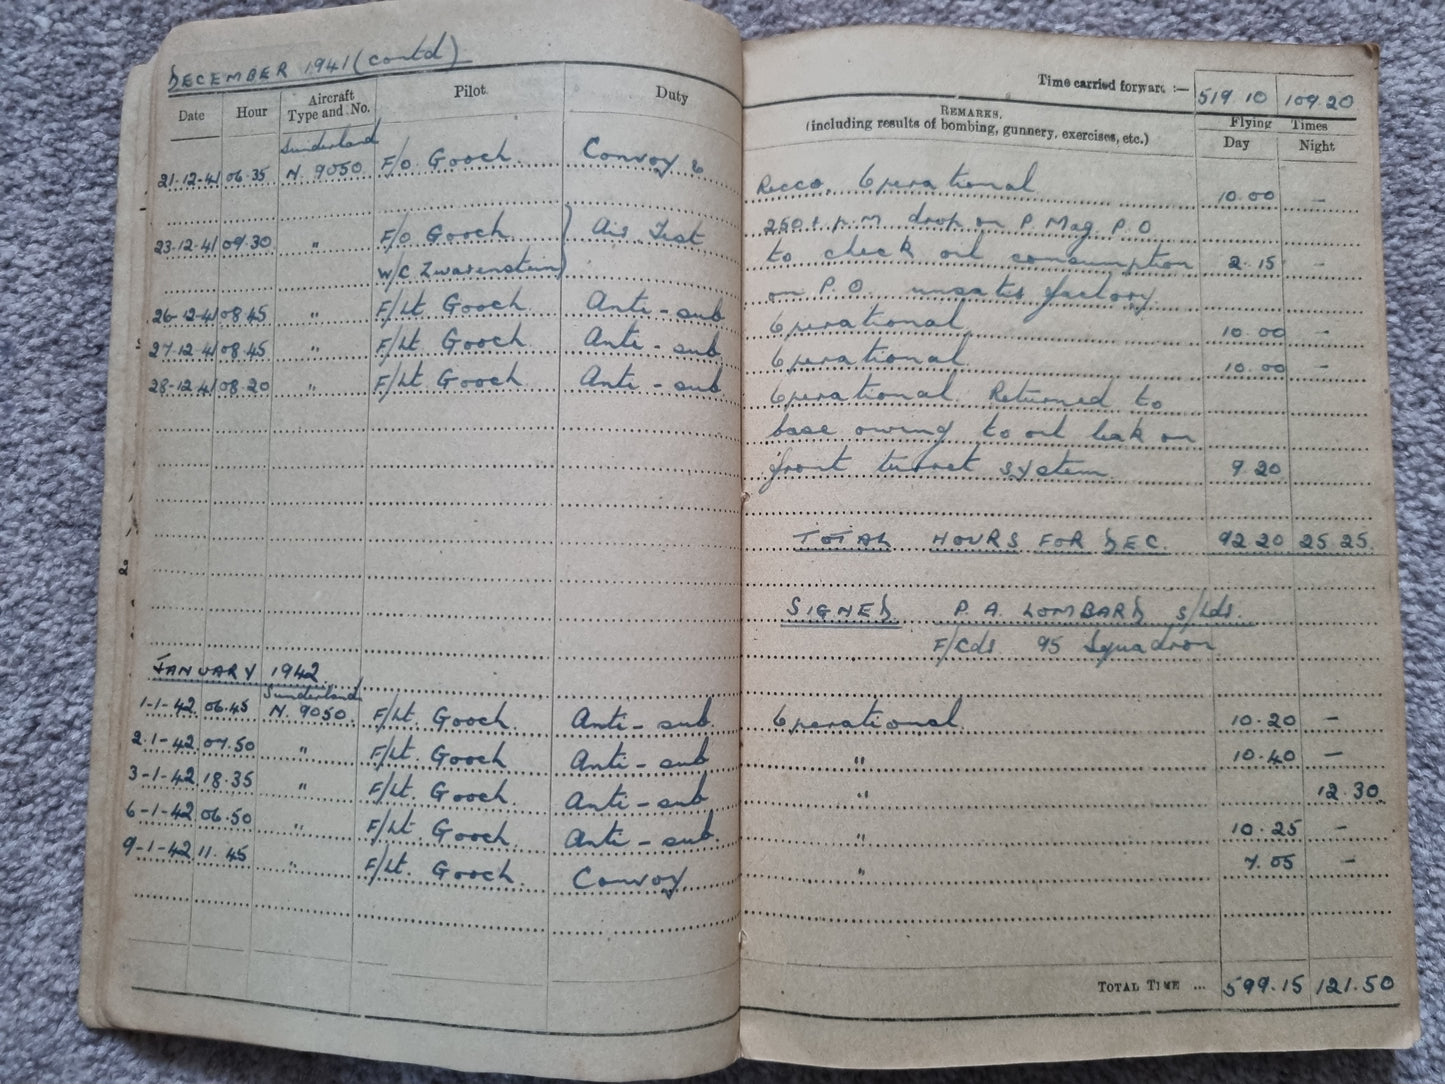 DECEMBER 1941 (contd)
Date Hour Aircraft Type and No. Pilot Duty
Time carried forward :— 519.10 109.20
REMARKS. (including results of bombing, gunnery, exercises, etc.) Flying Times Day Night
Sunderland
21.12.41 06.35 N. 9050 F/O. Gooch Convoy &
Recco. Operational 10.00 –
23.12.41 09.30 " F/O Gooch } Air Test
W/C. Zwarenstein }
250 r.p.m drop on P. Mag. P.O
to check oil consumption 2.15 –
on P.O. unsatisfactory.
26-12-41 08.45 " F/Lt Gooch Anti-sub Operational 10.00 –
27.12.41 08.45 " F/Lt Gooch Anti-sub Operational 10.00 –
28-12.41 08.20 " F/Lt Gooch Anti-sub Operational. Returned to
base owing to oil leak on
front turret system. 9.20
TOTAL HOURS FOR DEC. 92.20 25.25.
SIGNED P. A. LOMBARD S/Ldr.
F/Cdr 95 Squadron
JANUARY 1942
Sunderland
1-1-42 06.45 N. 9050. F/Lt. Gooch Anti-sub. Operational. 10.20 –
2.1-42 07.50 " F/Lt. Gooch Anti-sub " 10.40 –
3-1-42 18.35 " F/Lt. Gooch. Anti-sub " 12.30.
6-1-42 06.50 " F/Lt. Gooch Anti-sub. " 10.25 –
9-1-42 11.45 " F/Lt. Gooch. Convoy " 7.05 –
TOTAL TIME ... 599.15 121.50